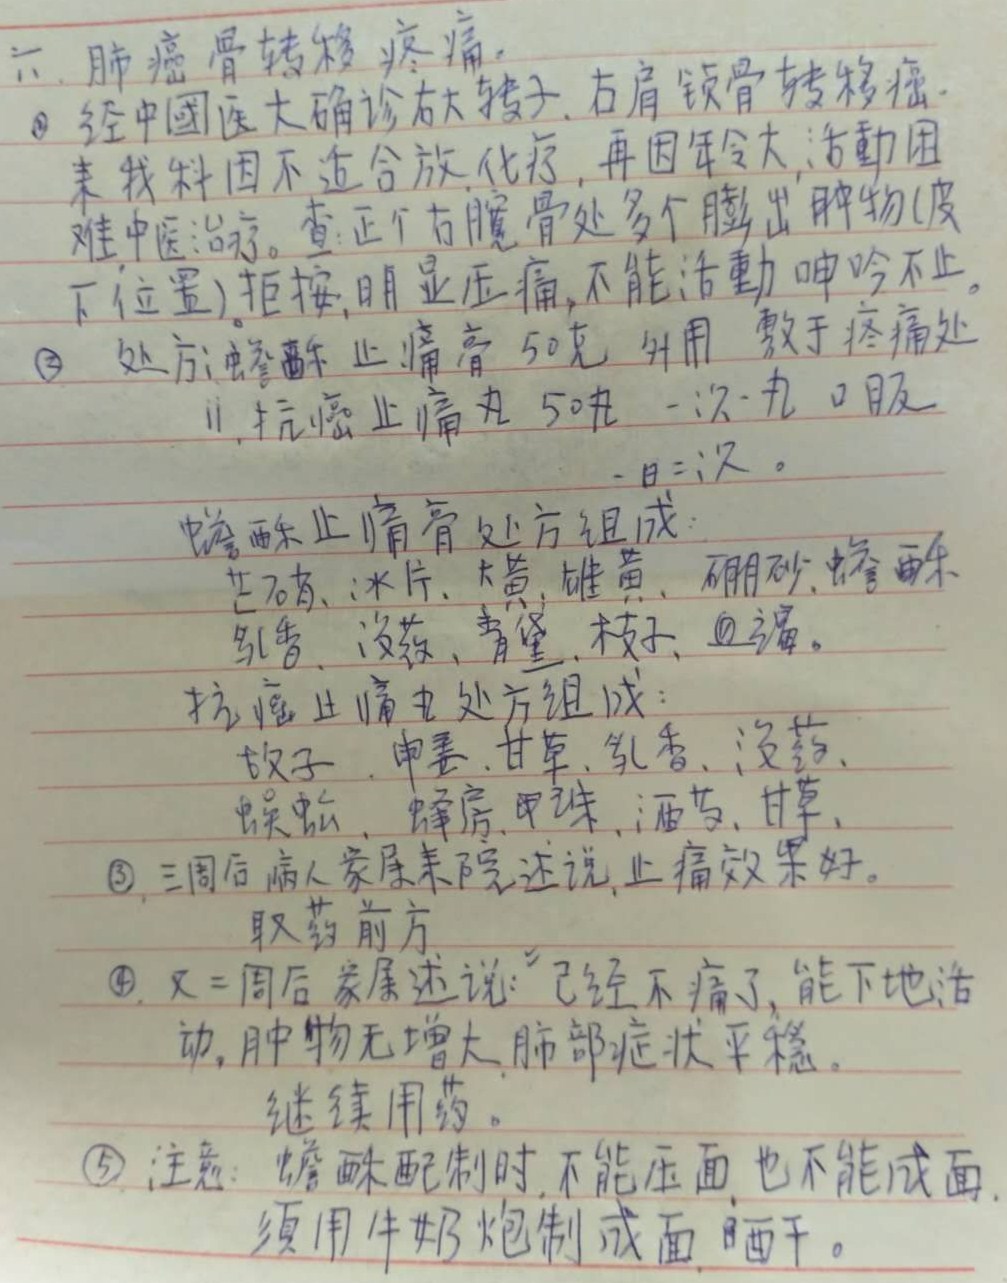 六、肺癌骨转移疼痛。
① 经中國医大确诊右大转子、右肩锁骨转移癌.
来我科因不适合放、化疗,再因年令大,活動困
难,中医治疗。查:正个右髋骨处多个膨出肿物(皮
下位置)。拒按,明显压痛,不能活動呻吟不止。
② 处方:蟾酥止痛膏 50克 外用 敷于疼痛处
〃.抗癌止痛丸 50丸 一次一丸 口服
一日二次。
蟾酥止痛膏处方组成:
芒硝、冰片、大黄、雄黄、硼砂、蟾酥
乳香、没药、青黛、枝子、血竭。
抗癌止痛丸处方组成:
故子、申姜、甘草、乳香、没药、
蜈蚣、蜂房、甲珠、酒芍、甘草、
③、三周后病人家属来院述说,止痛效果好。
取药前方
④、又二周后家属述说:“已经不痛了,能下地活
动,肿物无增大,肺部症状平稳。
继续用药。
⑤ 注意:蟾酥配制时,不能压面,也不能成面,
须用牛奶炮制成面,晒干。